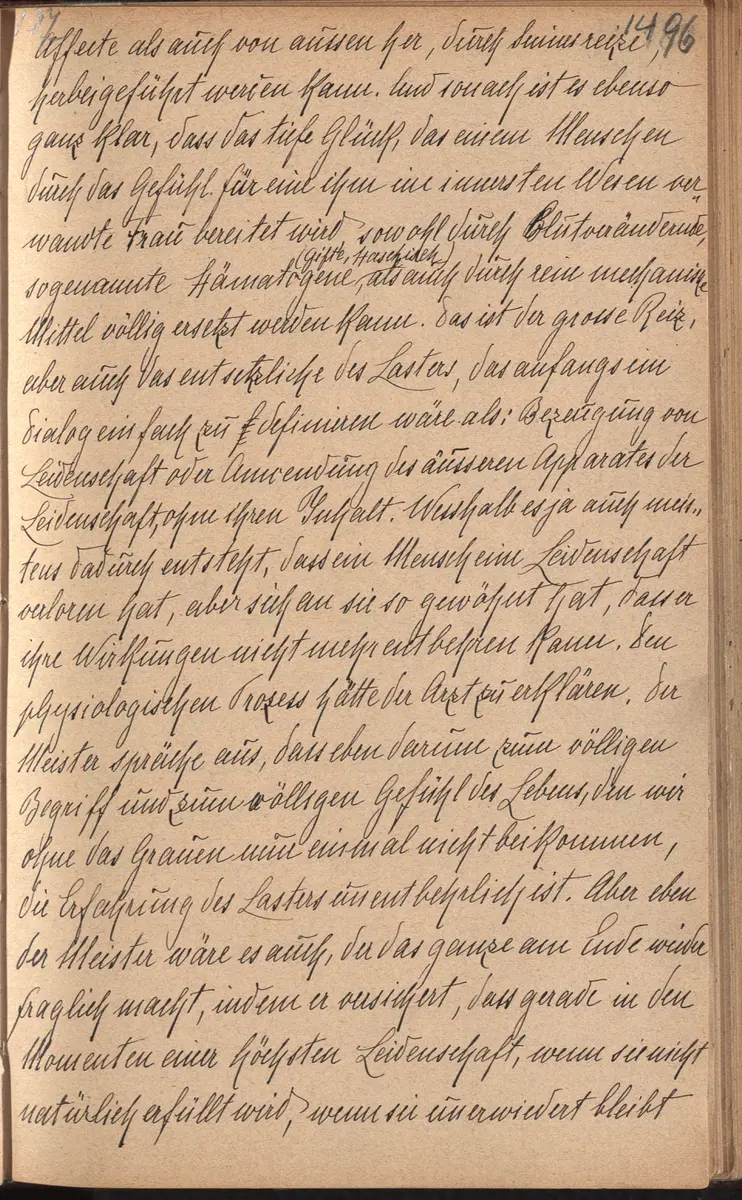 107 14196
Affecte als auch von aussen her, durch Sinnesreize,
herbeigeführt werden kann. Und sonach ist es ebenso
ganz klar, dass das tiefe Glück, das einem Menschen
durch das Gefühl für eine ihm im innersten Wesen ver„
wandte Frau bereitet wird, sowohl durch Blutverändernde,
(Gifte, Haschisch)
sogenannte Hämatogene, als auch durch rein mechanische
Mittel völlig ersetzt werden kann. Das ist der grosse Reiz,
aber auch das entsetzliche des Lasters, das anfangs im
Dialog einfach zu definiren wäre als: Bezeugung von
Leidenschaft oder Anwendung des äusseren Apparates der
Leidenschaft, ohne ihren Inhalt. Wesshalb es ja auch meis„
tens dadurch entsteht, dass ein Mensch eine Leidenschaft
verloren hat, aber sich an sie so gewöhnt hat, dass er
ihre Wirkungen nicht mehr entbehren kann. Den
physiologischen Prozess hätte der Arzt zu erklären. Der
Meister spräche aus, dass eben darum zum völligen
Begriff und zum völligen Gefühl des Lebens, den wir
ohne das Grauen nun einmal nicht beikommen,
die Erfahrung des Lasters unentbehrlich ist. Aber eben
der Meister wäre es auch, der das ganze am Ende wieder
fraglich macht, indem er versichert, dass gerade in den
Momenten einer höchsten Leidenschaft, wenn sie nicht
natürlich erfüllt wird, wenn sie unerwiedert bleibt